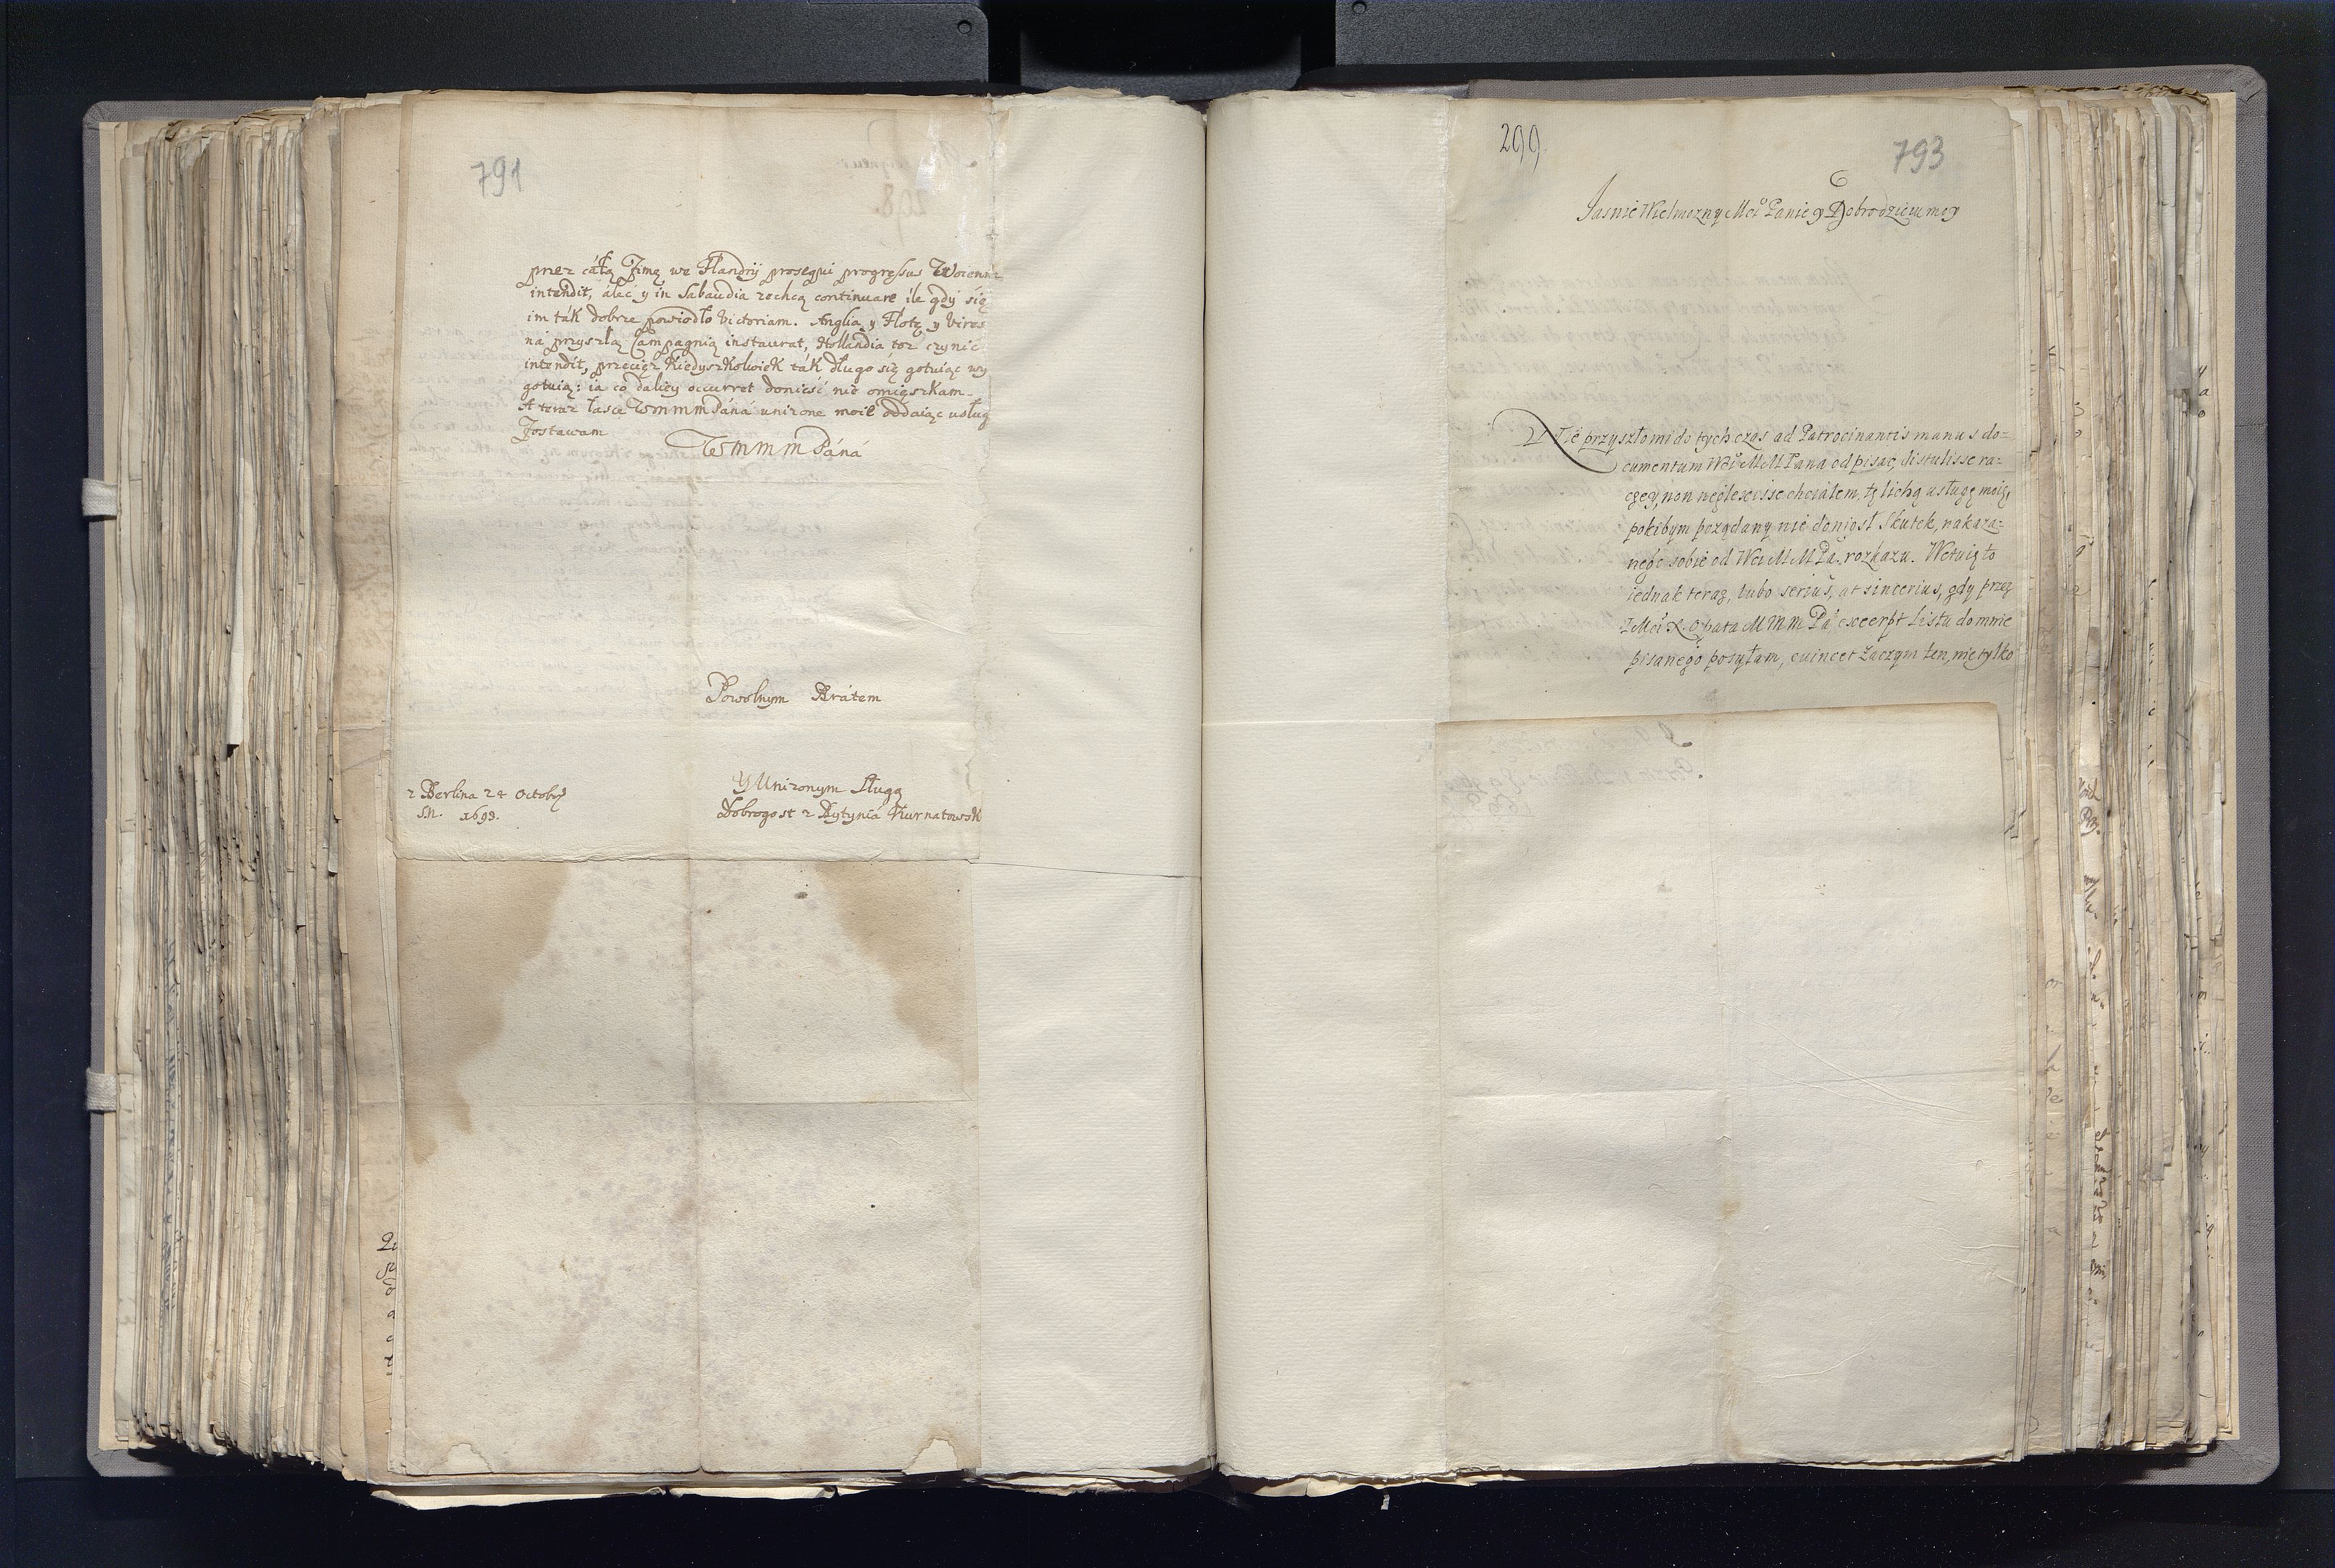 791
przez cáłą Zimę we Flandrij prosequi progressus Woienne
intendit, áleć y in Sabaudia zechcą continuare ile gdy się
im ták dobrze powiodło Victoriam. Anglia y Flotę y Vires
ná przyszłą Campagnią instaurat, Hollandia toż czynić
intendit, przecięż kiedyszkolwiek ták długo się gotuiąc wy
gotuią: ia co dáliey occurret donieść nie omięszkam.
A teraz łasce Wmmm Páná unizone moie oddaiąc usług
Zostawam
Wmmm Páná
Powolnym Brátem
z Berlina 24 Octobr
S.N. 1693.
y Unizonym Sługą
Dobrogost z Bytynia Kurnatowsk
299
793
Jasnie Wielmozny Mci Panie y Dobrodzieiu moy
Nie przyszło mi do tych czas ad Patrocinantis manus do=
cumentum WMMPana odpisać, distulisse ra=
czey, non neglexisse chciałem, tę lichą usługę moię,
pokibym pożądany nie doniosł Skutek, nakaza=
nego sobie od WMMPa. rozkazu. Wetuię to
iednak teraz, lubo serius, at sincerius, gdy przez
JMci X. Opata MMM Pa, excerpt Listu do mnie
pisanego posyłam, evincet zaczym ten, nie tylko